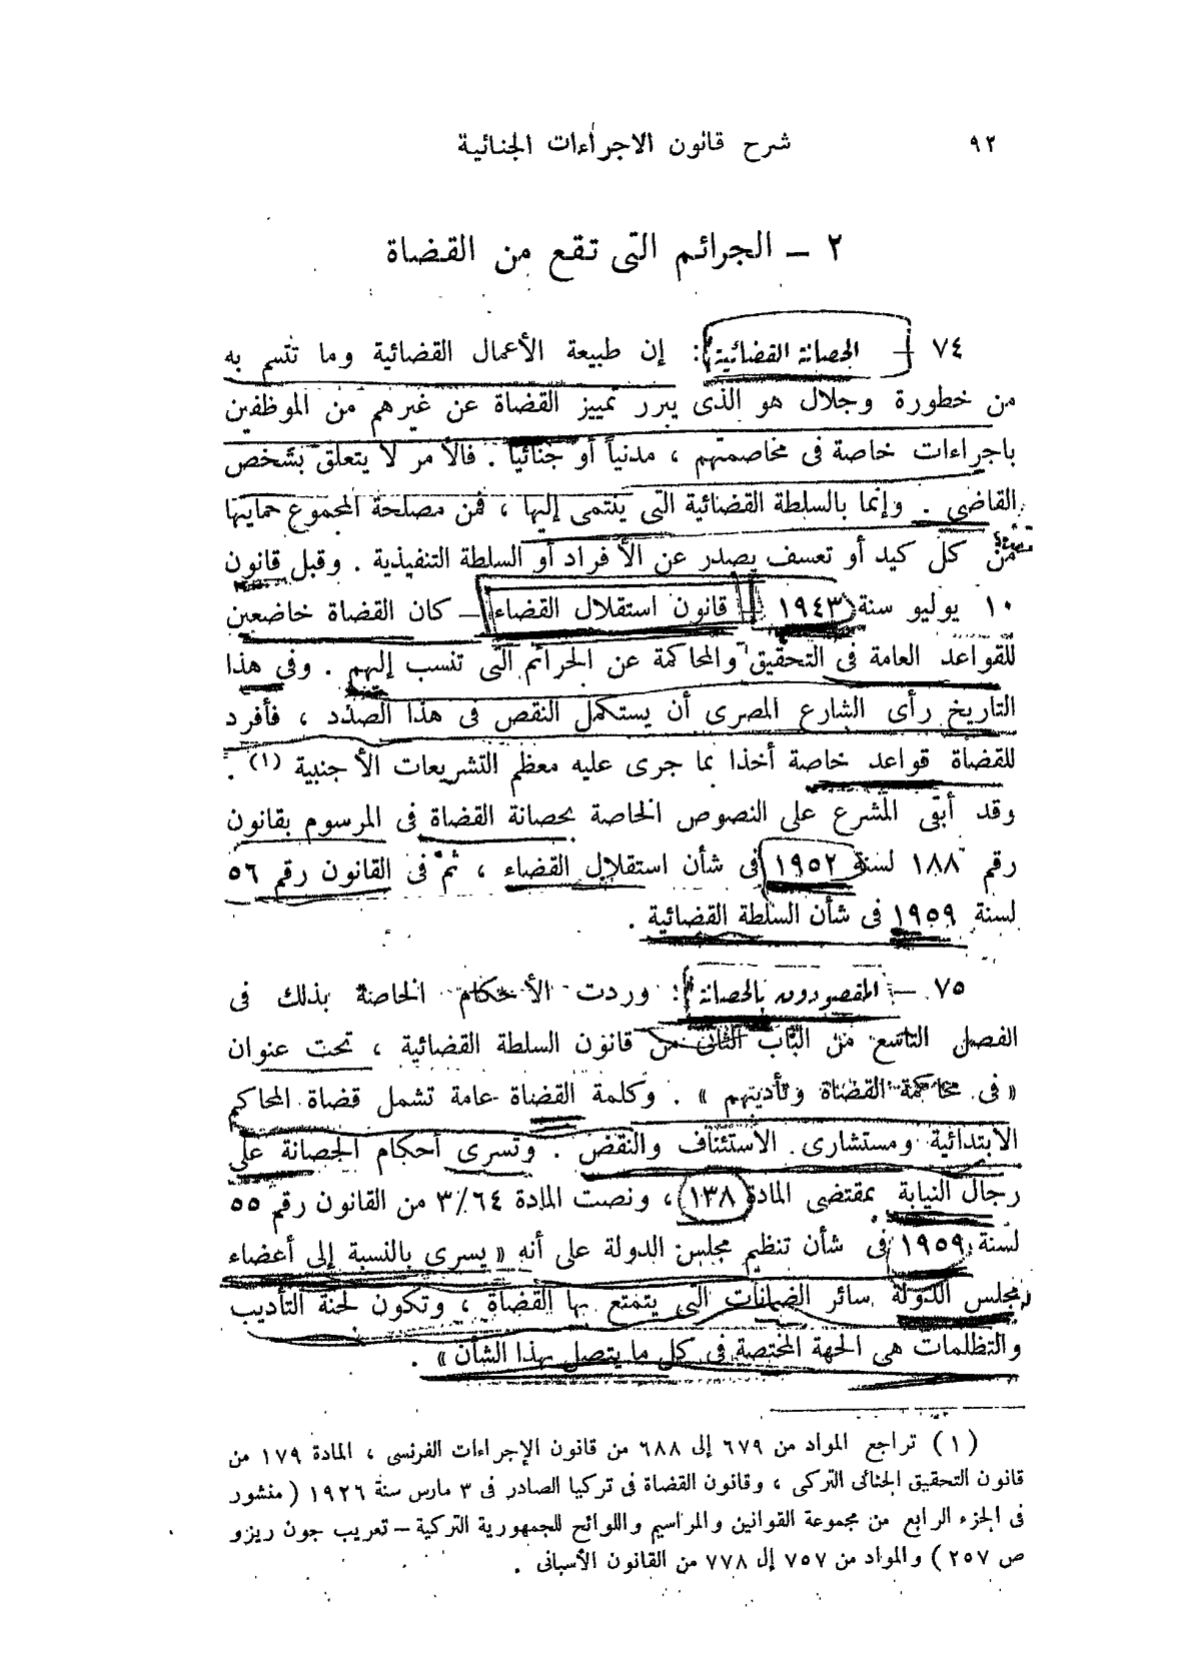 ٩٢
شرح قانون الاجراءات الجنائية
٢ – الجرائم التى تقع من القضاة
٧٤ – الحصانة القضائية : إن طبيعة الأعمال القضائية وما تتسم به
من خطورة وجلال هو الذى يبرر تمييز القضاة عن غيرهم من الموظفين
باجراءات خاصة فى مخاصمتهم ، مدنياً أو جنائياً . فالأمر لا يتعلق بشخص
القاضى . وإنما بالسلطة القضائية التى ينتمى إليها ، فمن مصلحة المجموع حمايتها
من كل كيد أو تعسف يصدر عن الأفراد أو السلطة التنفيذية . وقبل قانون
١٠ يوليو سنة ١٩٤٣ – قانون استقلال القضاء – كان القضاة خاضعين
للقواعد العامة فى التحقيق والمحاكمة عن الجرائم التى تنسب إليهم . وفى هذا
التاريخ رأى الشارع المصرى أن يستكمل النقص فى هذا الصدد ، فأفرد
للقضاة قواعد خاصة أخذا بما جرى عليه معظم التشريعات الأجنبية (١) .
وقد أبقى المشرع على النصوص الخاصة بحصانة القضاة فى المرسوم بقانون
رقم ١٨٨ لسنة ١٩٥٢ فى شأن استقلال القضاء ، ثم فى القانون رقم ٥٦
لسنة ١٩٥٩ فى شأن السلطة القضائية .
٧٥ – المقصودون بالحصانة : وردت الأحكام الخاصة بذلك فى
الفصل التاسع من الباب الثانى من قانون السلطة القضائية ، تحت عنوان
« فى محاكمة القضاة وتأديبهم » . وكلمة القضاة عامة تشمل قضاة المحاكم
الابتدائية ومستشارى الاستئناف والنقض . وتسرى أحكام الحصانة على
رجال النيابة بمقتضى المادة ١٣٨ ، ونصت المادة ٣/٦٤ من القانون رقم ٥٥
لسنة ١٩٥٩ فى شأن تنظيم مجلس الدولة على أنه « يسرى بالنسبة إلى أعضاء
مجلس الدولة سائر الضمانات التى يتمتع بها القضاة ، وتكون لجنة التأديب
والتظلمات هى الجهة المختصة فى كل ما يتصل بهذا الشأن » .
(١) تراجع المواد من ٦٧٩ إلى ٦٨٨ من قانون الإجراءات الفرنسى ، المادة ١٧٩ من
قانون التحقيق الجنائى التركى ، وقانون القضاة فى تركيا الصادر فى ٣ مارس سنة ١٩٢٦ ( منشور
فى الجزء الرابع من مجموعة القوانين والمراسيم واللوائح للجمهورية التركية – تعريب جون ريزو
ص ٢٥٧ ) والمواد من ٧٥٧ إلى ٧٧٨ من القانون الأسبانى .